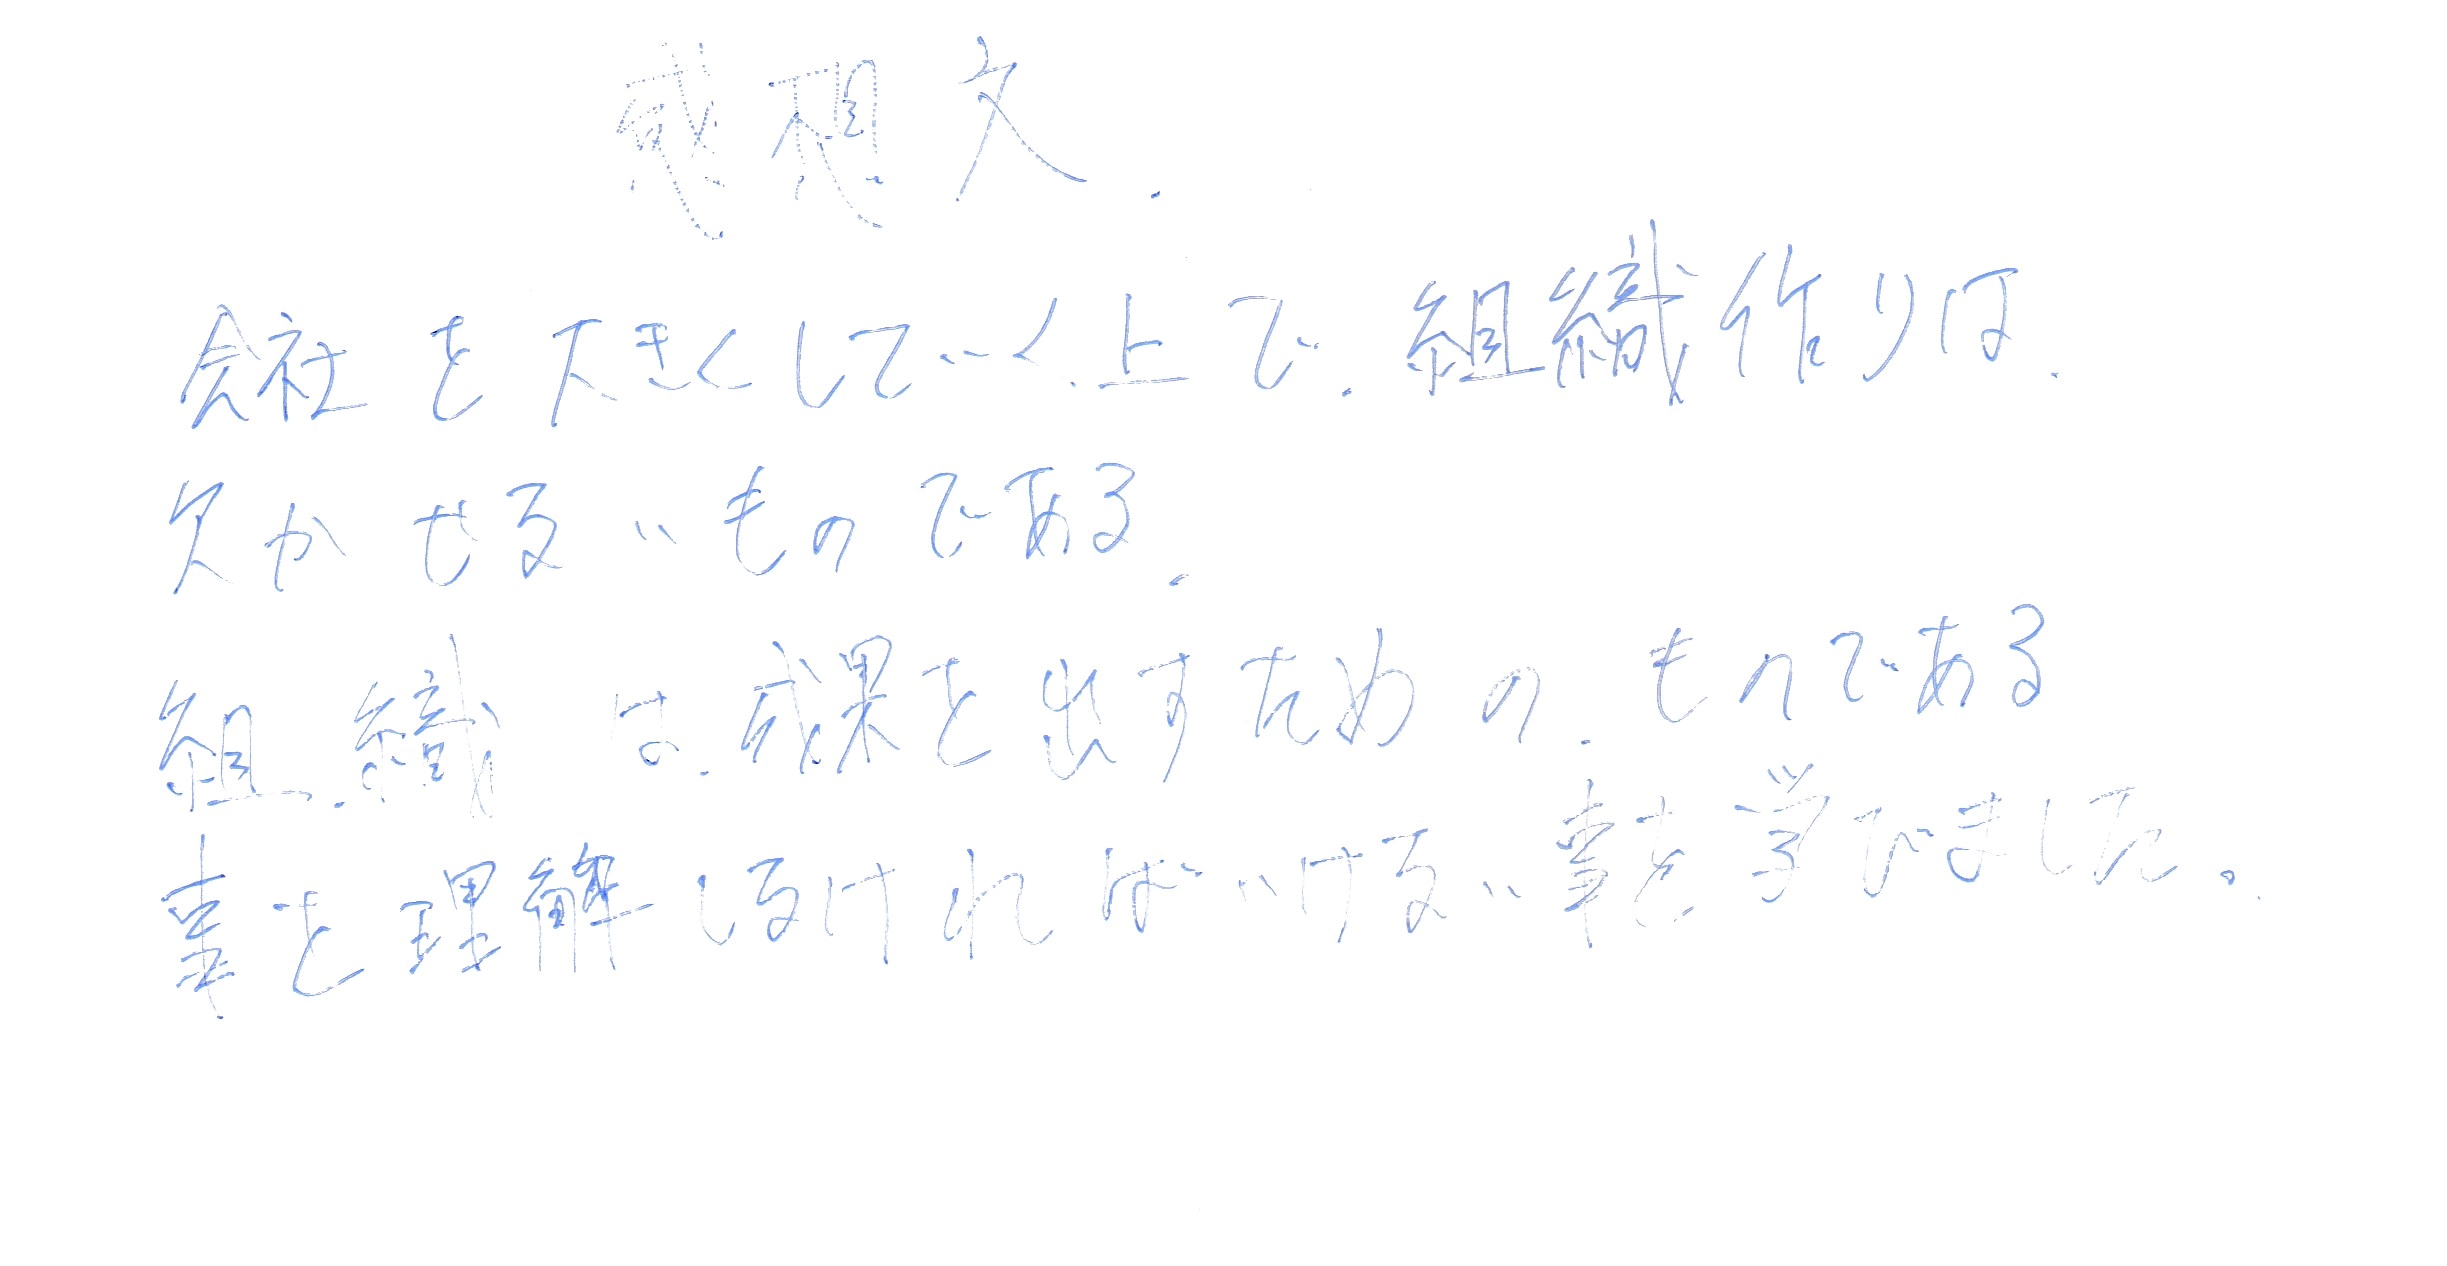 感想文.
会社を大きくしていく上で.組織作りは.
欠かせないものである.
組織は.成果を出すための.ものである
事を理解しなければいけない事を学びました。